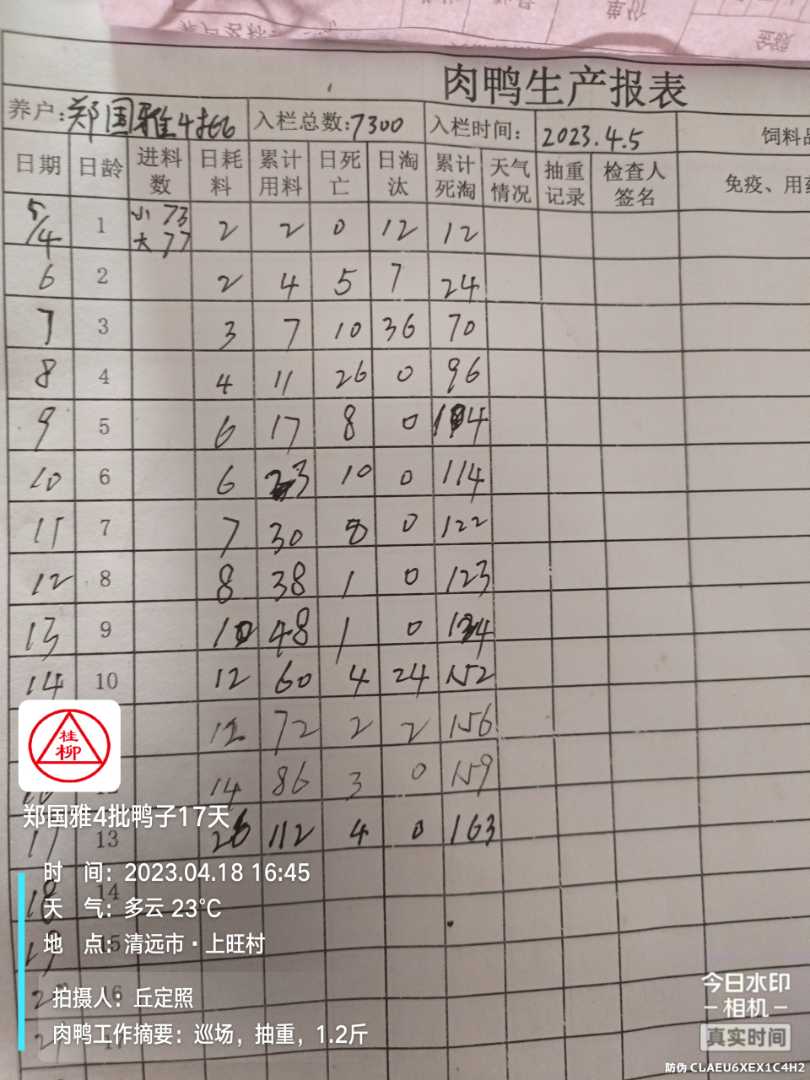 肉鸭生产报表
养户:郑国雅4批 入栏总数:7300 入栏时间: 2023.4.5 饲料
日期 日龄 进料数 日耗料 累计用料 日死亡 日淘汰 累计死淘 天气情况 抽重记录 检查人签名 免疫、用药
5/4 1 小 73 大 77 2 2 0 12 12
6 2 2 4 5 7 24
7 3 3 7 10 36 70
8 4 4 11 26 0 96
9 5 6 17 8 0
10 6 6 23 10 0 114
11 7 7 30 8 0 122
12 8 8 38 1 0 123
13 9 10 48 1 0 124
14 10 12 60 4 24 152
12 72 2 2 156
14 86 3 0 159
13 26 112 4 0 163
18 14
15
16
桂柳
郑国雅4批鸭子17天
时 间: 2023.04.18 16:45
天 气: 多云 23℃
地 点: 清远市·上旺村
拍摄人: 丘定照
肉鸭工作摘要: 巡场，抽重，1.2斤
今日水印
相机
真实时间
防伪 CLAEU6XEX1C4H2